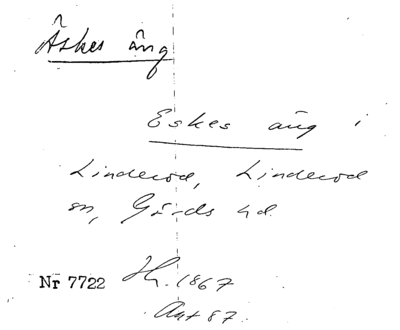 Äskes äng
Eskes äng i
Linderöd, Linderöd
sn, Gärds hd.
Nr 7722 1867
87.